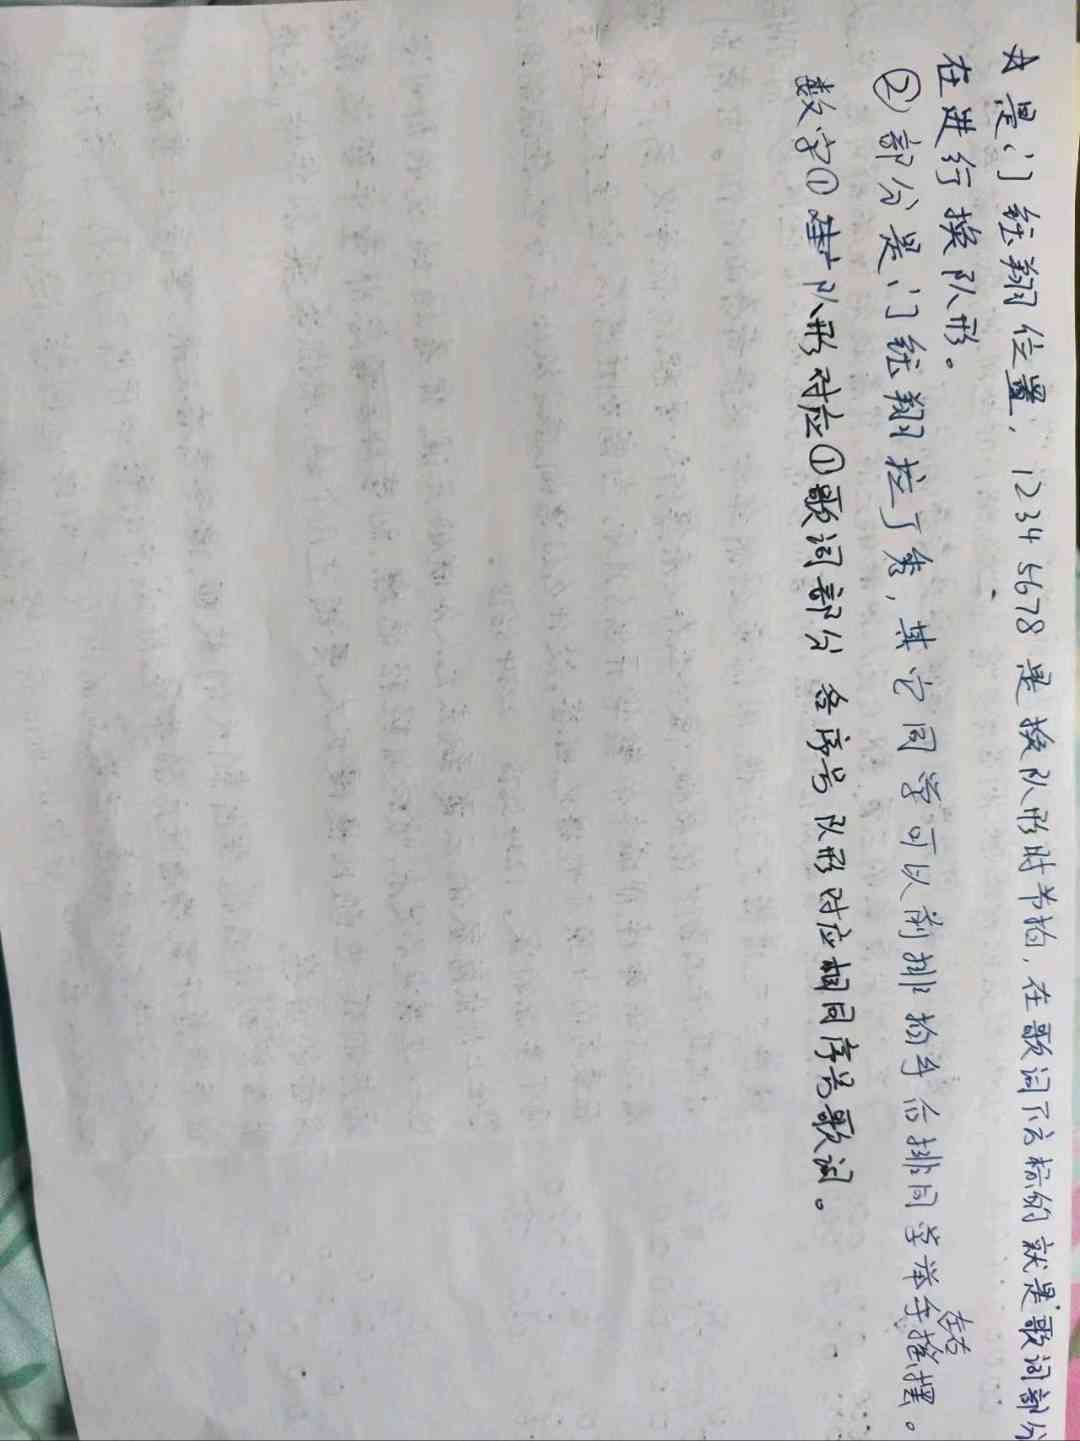 ☆是门纭翔位置，12345678是换队形时节拍，在歌词下方标的就是歌词部分
在进行换队形。
②部分是门纭翔拉丁秀，其它同学可以前排扮手后排同学举手左右摇摆。
数字①队形对应①歌词部分 各序号队形对应相同序号歌词。